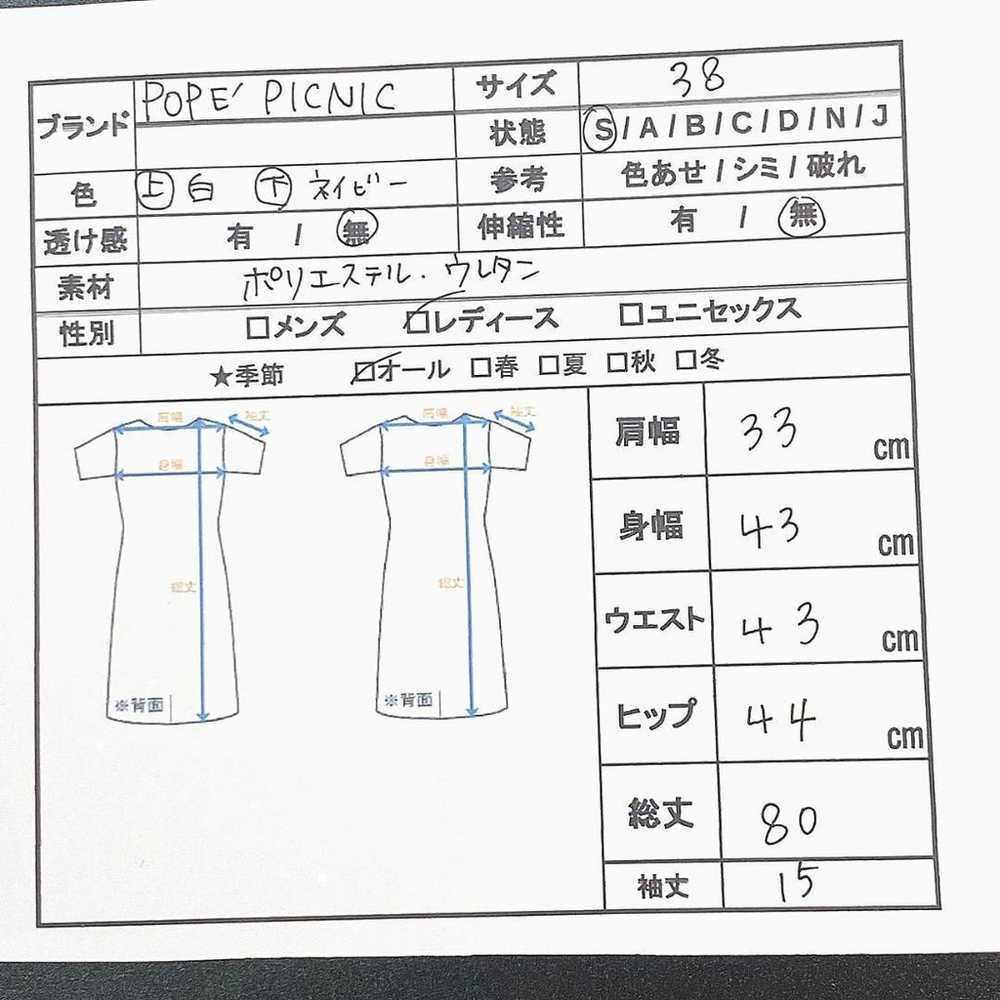 ブランド POPE' PICNIC サイズ 38
状態 S / A / B / C / D / N / J
色 上 白 下 ネイビー 参考 色あせ / シミ / 破れ
透け感 有 / 無 伸縮性 有 / 無
素材 ポリエステル・ウレタン
性別 □メンズ ☑レディース □ユニセックス
★季節 ☑オール □春 □夏 □秋 □冬
肩幅 袖丈
身幅
総丈
※背面
肩幅 袖丈
身幅
総丈
※背面
肩幅 33 cm
身幅 43 cm
ウエスト 43 cm
ヒップ 44 cm
総丈 80
袖丈 15